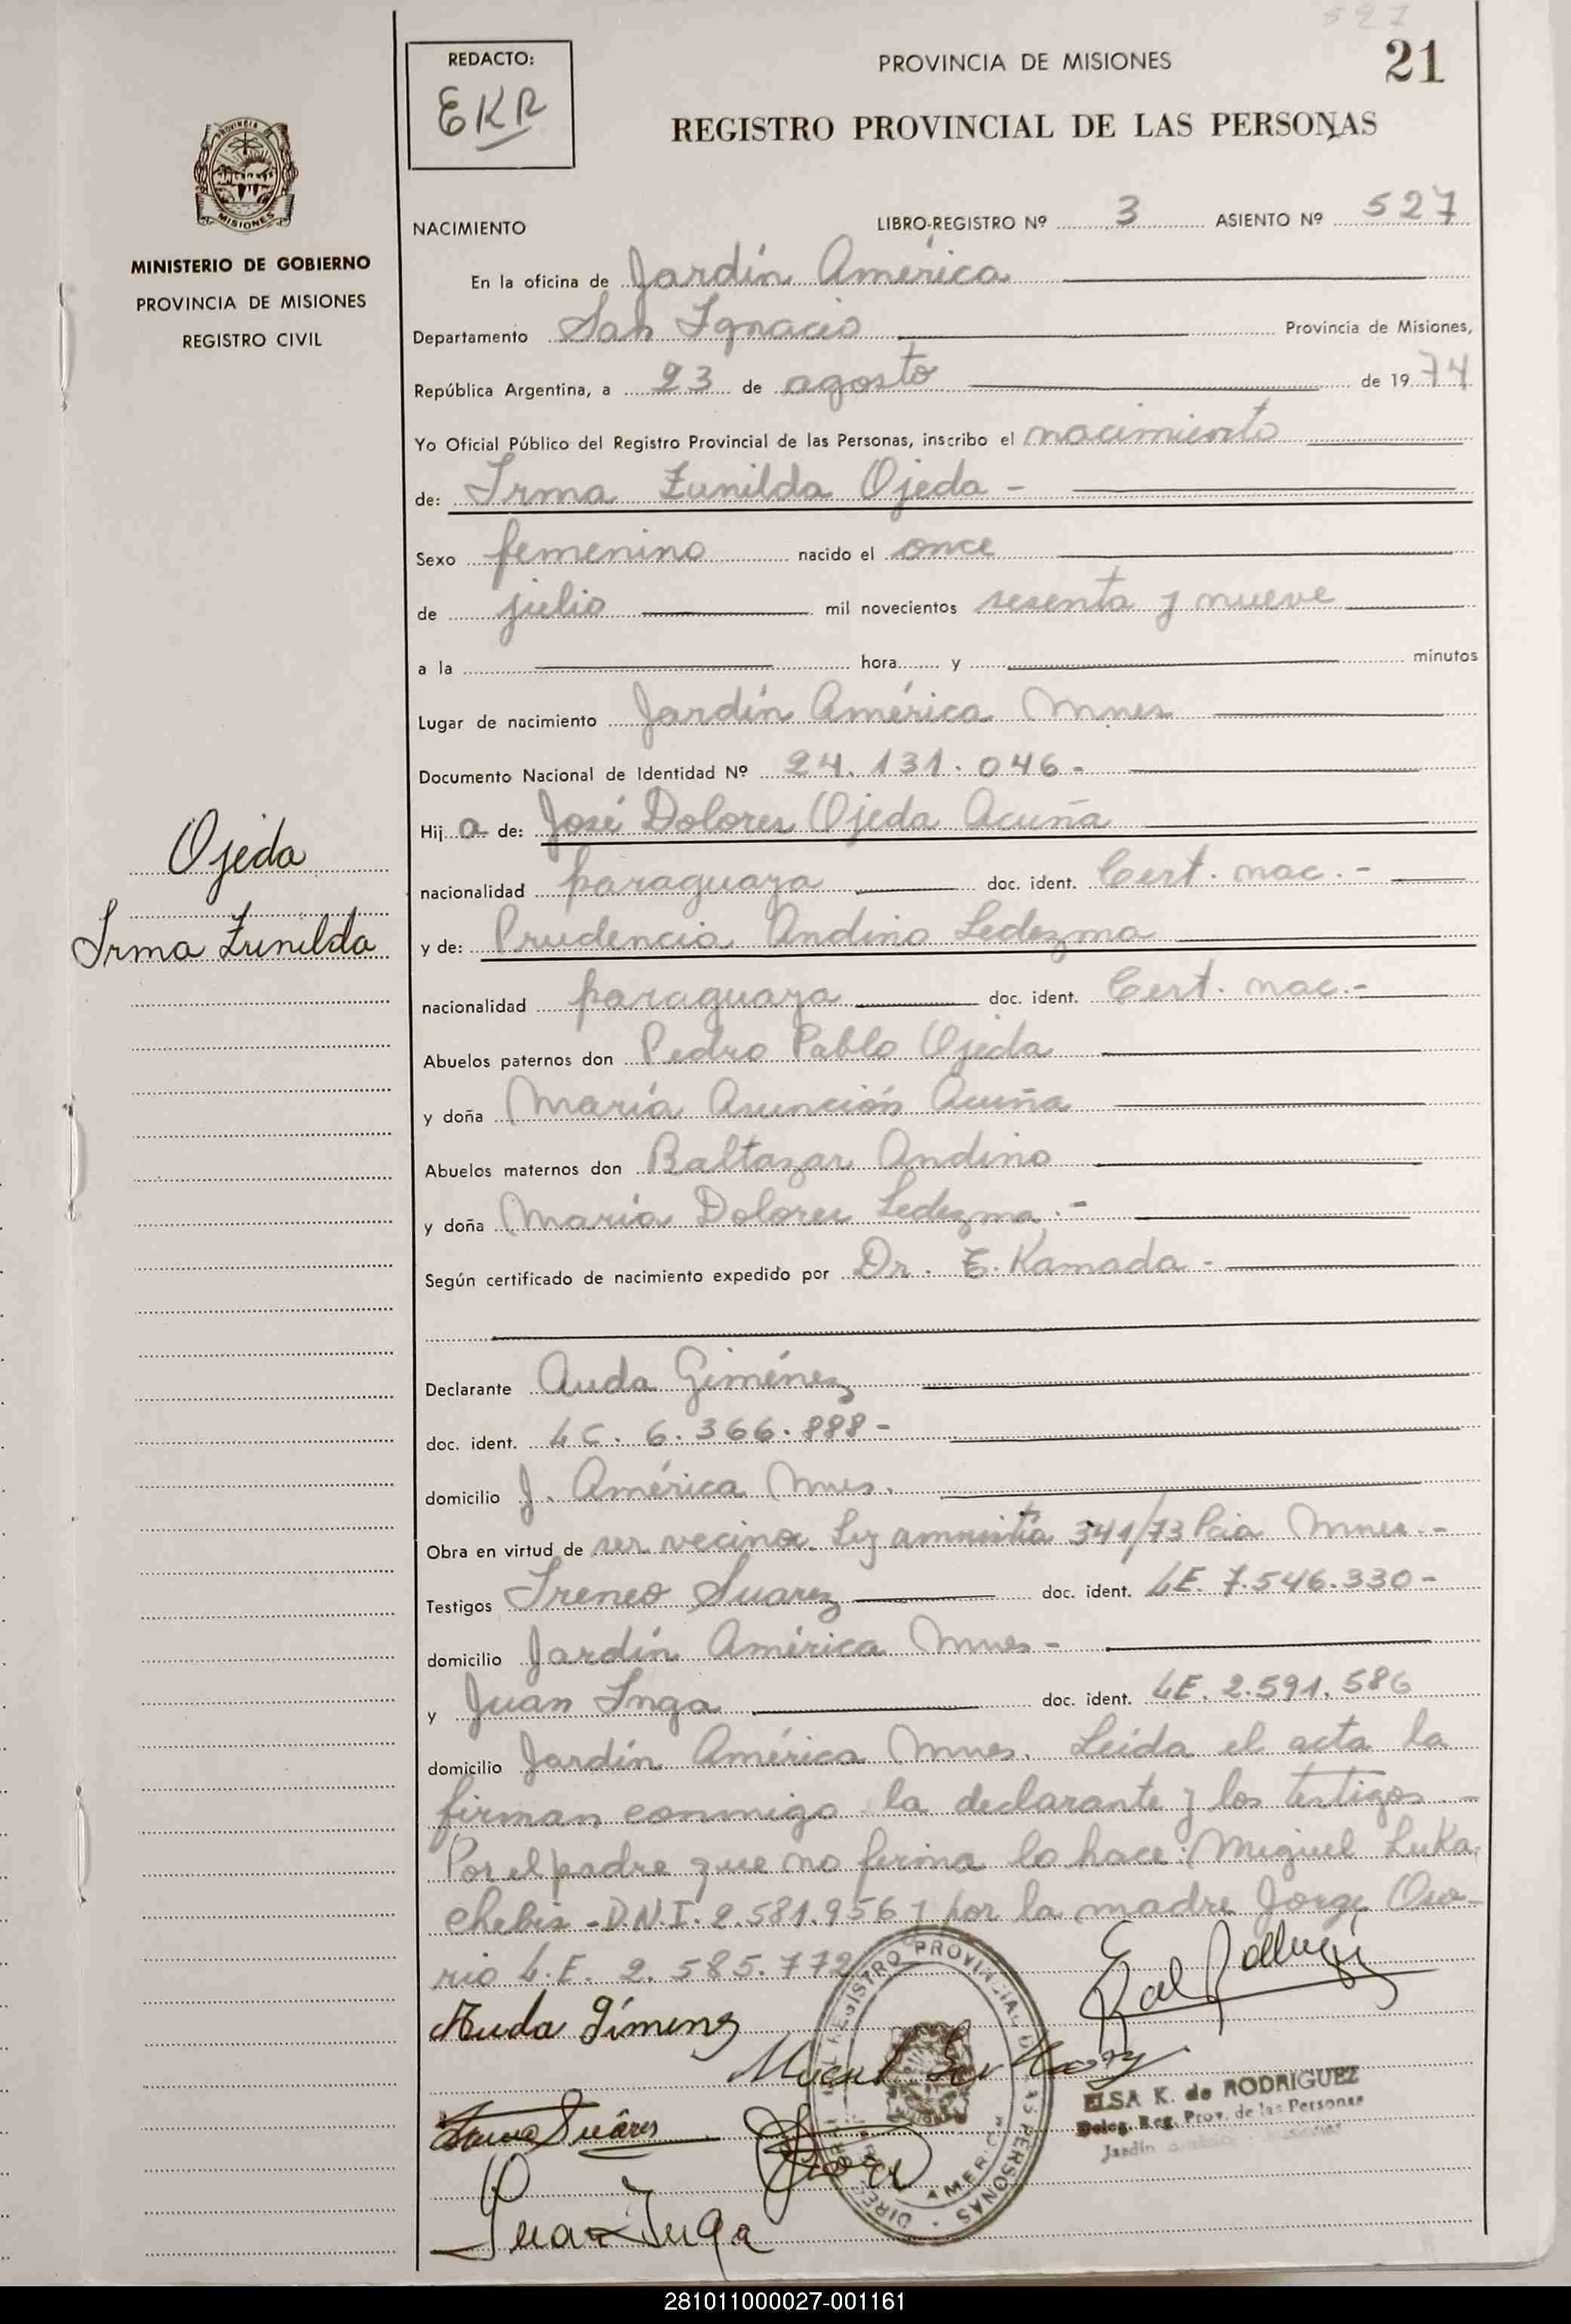 527
21
REDACTO:
EKR
PROVINCIA DE MISIONES
REGISTRO PROVINCIAL DE LAS PERSONAS
PROVINCIA
MISIONES
MINISTERIO DE GOBIERNO
PROVINCIA DE MISIONES
REGISTRO CIVIL
NACIMIENTO LIBRO-REGISTRO Nº 3 ASIENTO Nº 527
En la oficina de Jardín América
Departamento San Ignacio Provincia de Misiones,
República Argentina, a 23 de agosto de 1974
Yo Oficial Público del Registro Provincial de las Personas, inscribo el nacimiento
de: Irma Zunilda Ojeda -
Sexo femenino nacido el once
de julio mil novecientos sesenta y nueve
a la hora y minutos
Lugar de nacimiento Jardín América Mnes
Documento Nacional de Identidad Nº 24.131.046-
Hij a de: José Dolores Ojeda Acuña
nacionalidad paraguaya doc. ident. Cert. nac.-
y de: Prudencia Andino Ledezma
nacionalidad paraguaya doc. ident. Cert. nac.-
Abuelos paternos don Pedro Pablo Ojeda
y doña María Asunción Acuña
Abuelos maternos don Baltazar Andino
y doña María Dolores Ledezma.-
Según certificado de nacimiento expedido por Dr. E. Kamada -
Declarante Auda Giménez
doc. ident. LC. 6.366.888-
domicilio J. América Mnes.
Obra en virtud de ser vecina. Ley amnistía 341/73 Pcia Mnes.-
Testigos Ireneo Suarez doc. ident. LE. 7.546.330-
domicilio Jardín América Mnes-
y Juan Inga doc. ident. LE. 2.591.586
domicilio Jardín América Mnes. Leída el acta la
firman conmigo la declarante y los testigos.-
Por el padre que no firma lo hace: Miguel Luka
chebis -D.N.I. 2.581.956 y por la madre Jorge Oso-
rio L.E. 2.585.772
Ojeda
Irma Zunilda
Auda Jimenz
Suáres
Juan Inga
REGISTRO PROVINCIAL DE LAS PERSONAS
ELSA K. de RODRIGUEZ
Deleg. Reg. Prov. de las Personas
Jardín
281011000027-001161